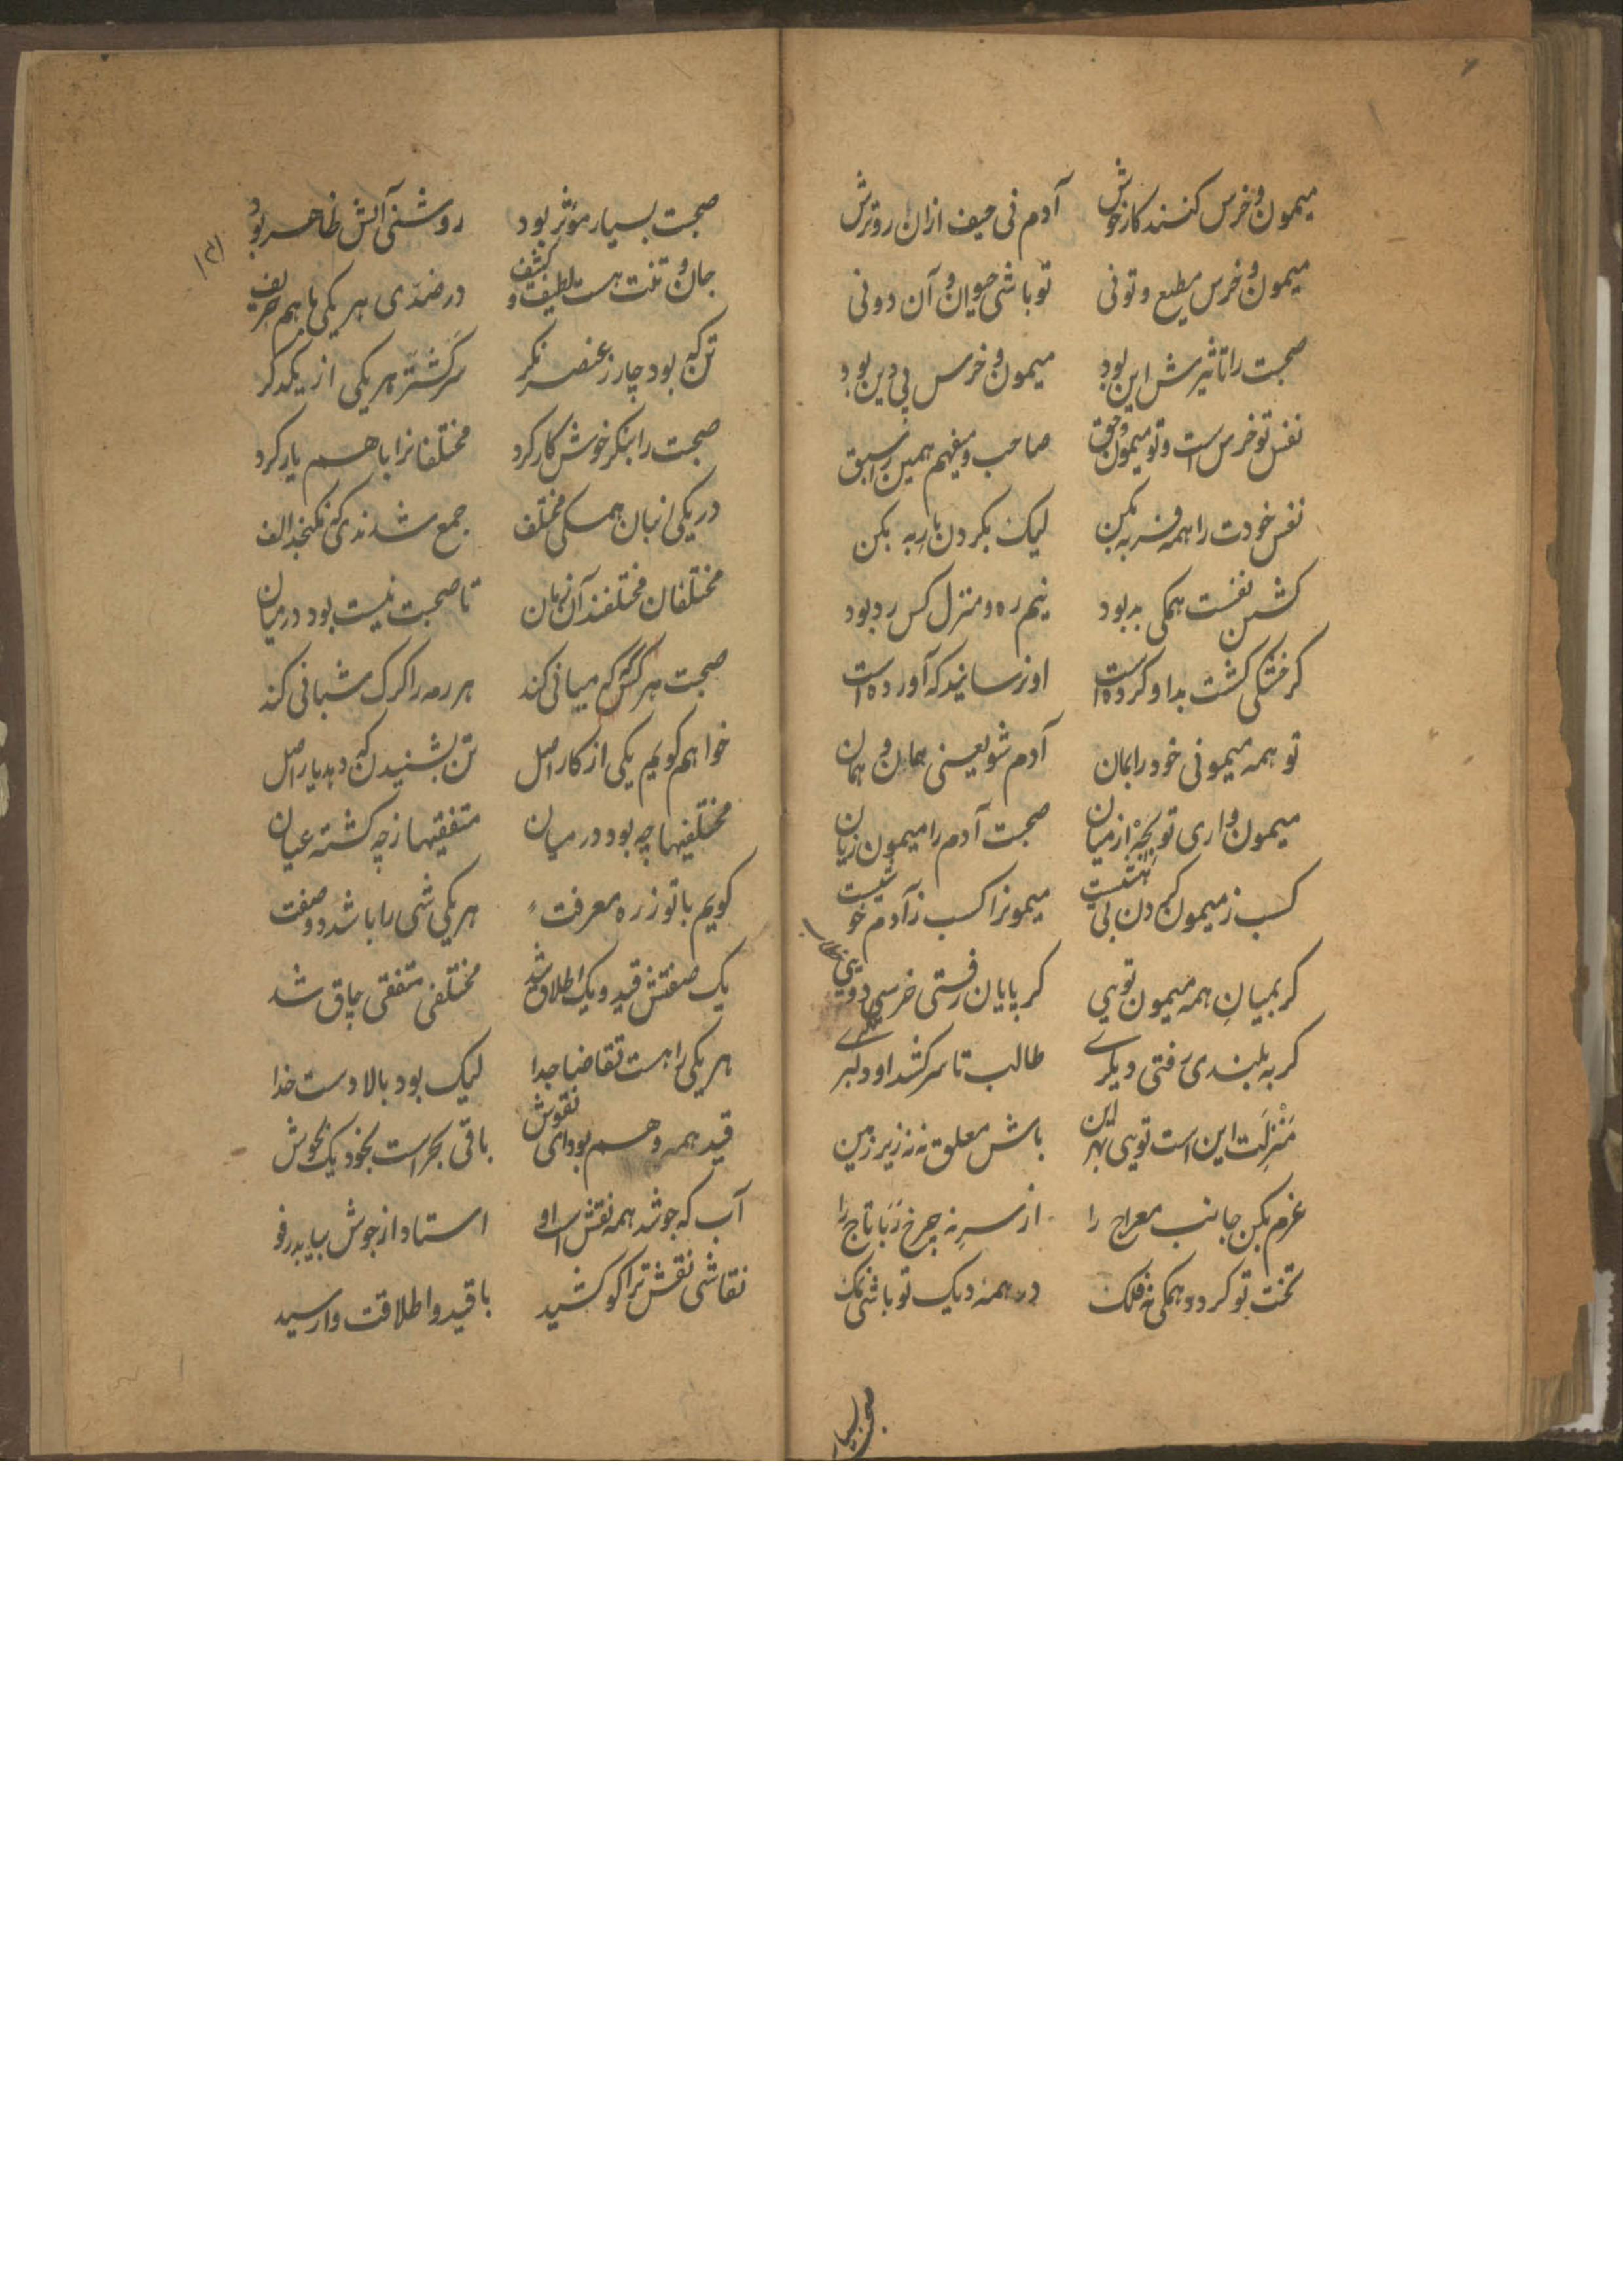 میمون و خرس کنند کار خوش آدم نی حیف ازان رو ترش
میمون و خرس مطیع و تو نی تو باشی حیوان و آن دو نی
صحبت را تاثیرش این بود میمون و خرس پی دین بود
نفس تو خرس است و تو میمون حق صاحب و میفهم همین را سبق
نفس خودت را همه فربه بکن لیک بکردن به بکن
کشتن نفست همگی بد بود نیم ره و منزل کس رد بود
کر خشکی کشت بد او کرده است او نرسانید که آورده است
تو همه میمونی خود را بمان آدم شو یعنی همان و همان
میمون واری تو بجه از میان صحبت آدم را میمون زیان
کسب ز میمون دن بی میمونرا کسب ز آدم خو
کر بمیان همه میمون تویی کر بپایان رفتی خرسی دویی
کر به بلندی رفتی دیگرے طالب تا سر کشد او دلبرے
منزلت این است تویی بهر این باش معلق نه نه زیر زمین
عزم بکن جانب معراج را از سر نه چرخ ربا تاج را
تخت تو کردد همگی نه فلک در همه دیک تو باشی نمک
صحبت بسیار
۱۲۱
صحبت بسیار مؤثر بود روشنی آتش ظاهر بود
جان و تنت هست لطیف و کثیف در ضدی هر یکی با هم حریف
تن که بود چار ز عنصر نکر سرکشتر هر یکی از یکدگر
صحبت را بنکر خوش کار کرد مختلفانرا با هم یار کرد
در یکی انبان همگی مختلف جمع شدندی که نکنجد الف
مختلفان مختلفند آن زمان تا صحبت نیست بود در میان
صحبت هر کس که میانی کند هر رمه را کرک شبانی کند
خواهم کویم یکی از کار اصل تن بشنیدن که دهد یار اصل
مختلفیها چه بود در میان متفقیها ز چه کشته عیان
کویم با تو ز ره معرفت هر یکی شی را باشد دو صفت
یک صفتش قید و یک اطلاق شد مختلفی متفقی چاق شد
هر یکی را هست تقاضا جدا لیک بود بالا دست خدا
قید همه وهم بود ای نقوش باقی بحر است بخود یک بجوش
آب که جوشد همه نقش است او استاد از جوش بیاید رفو
نقاشی نقش ترا کو کشید با قید و اطلاقت وا رسید